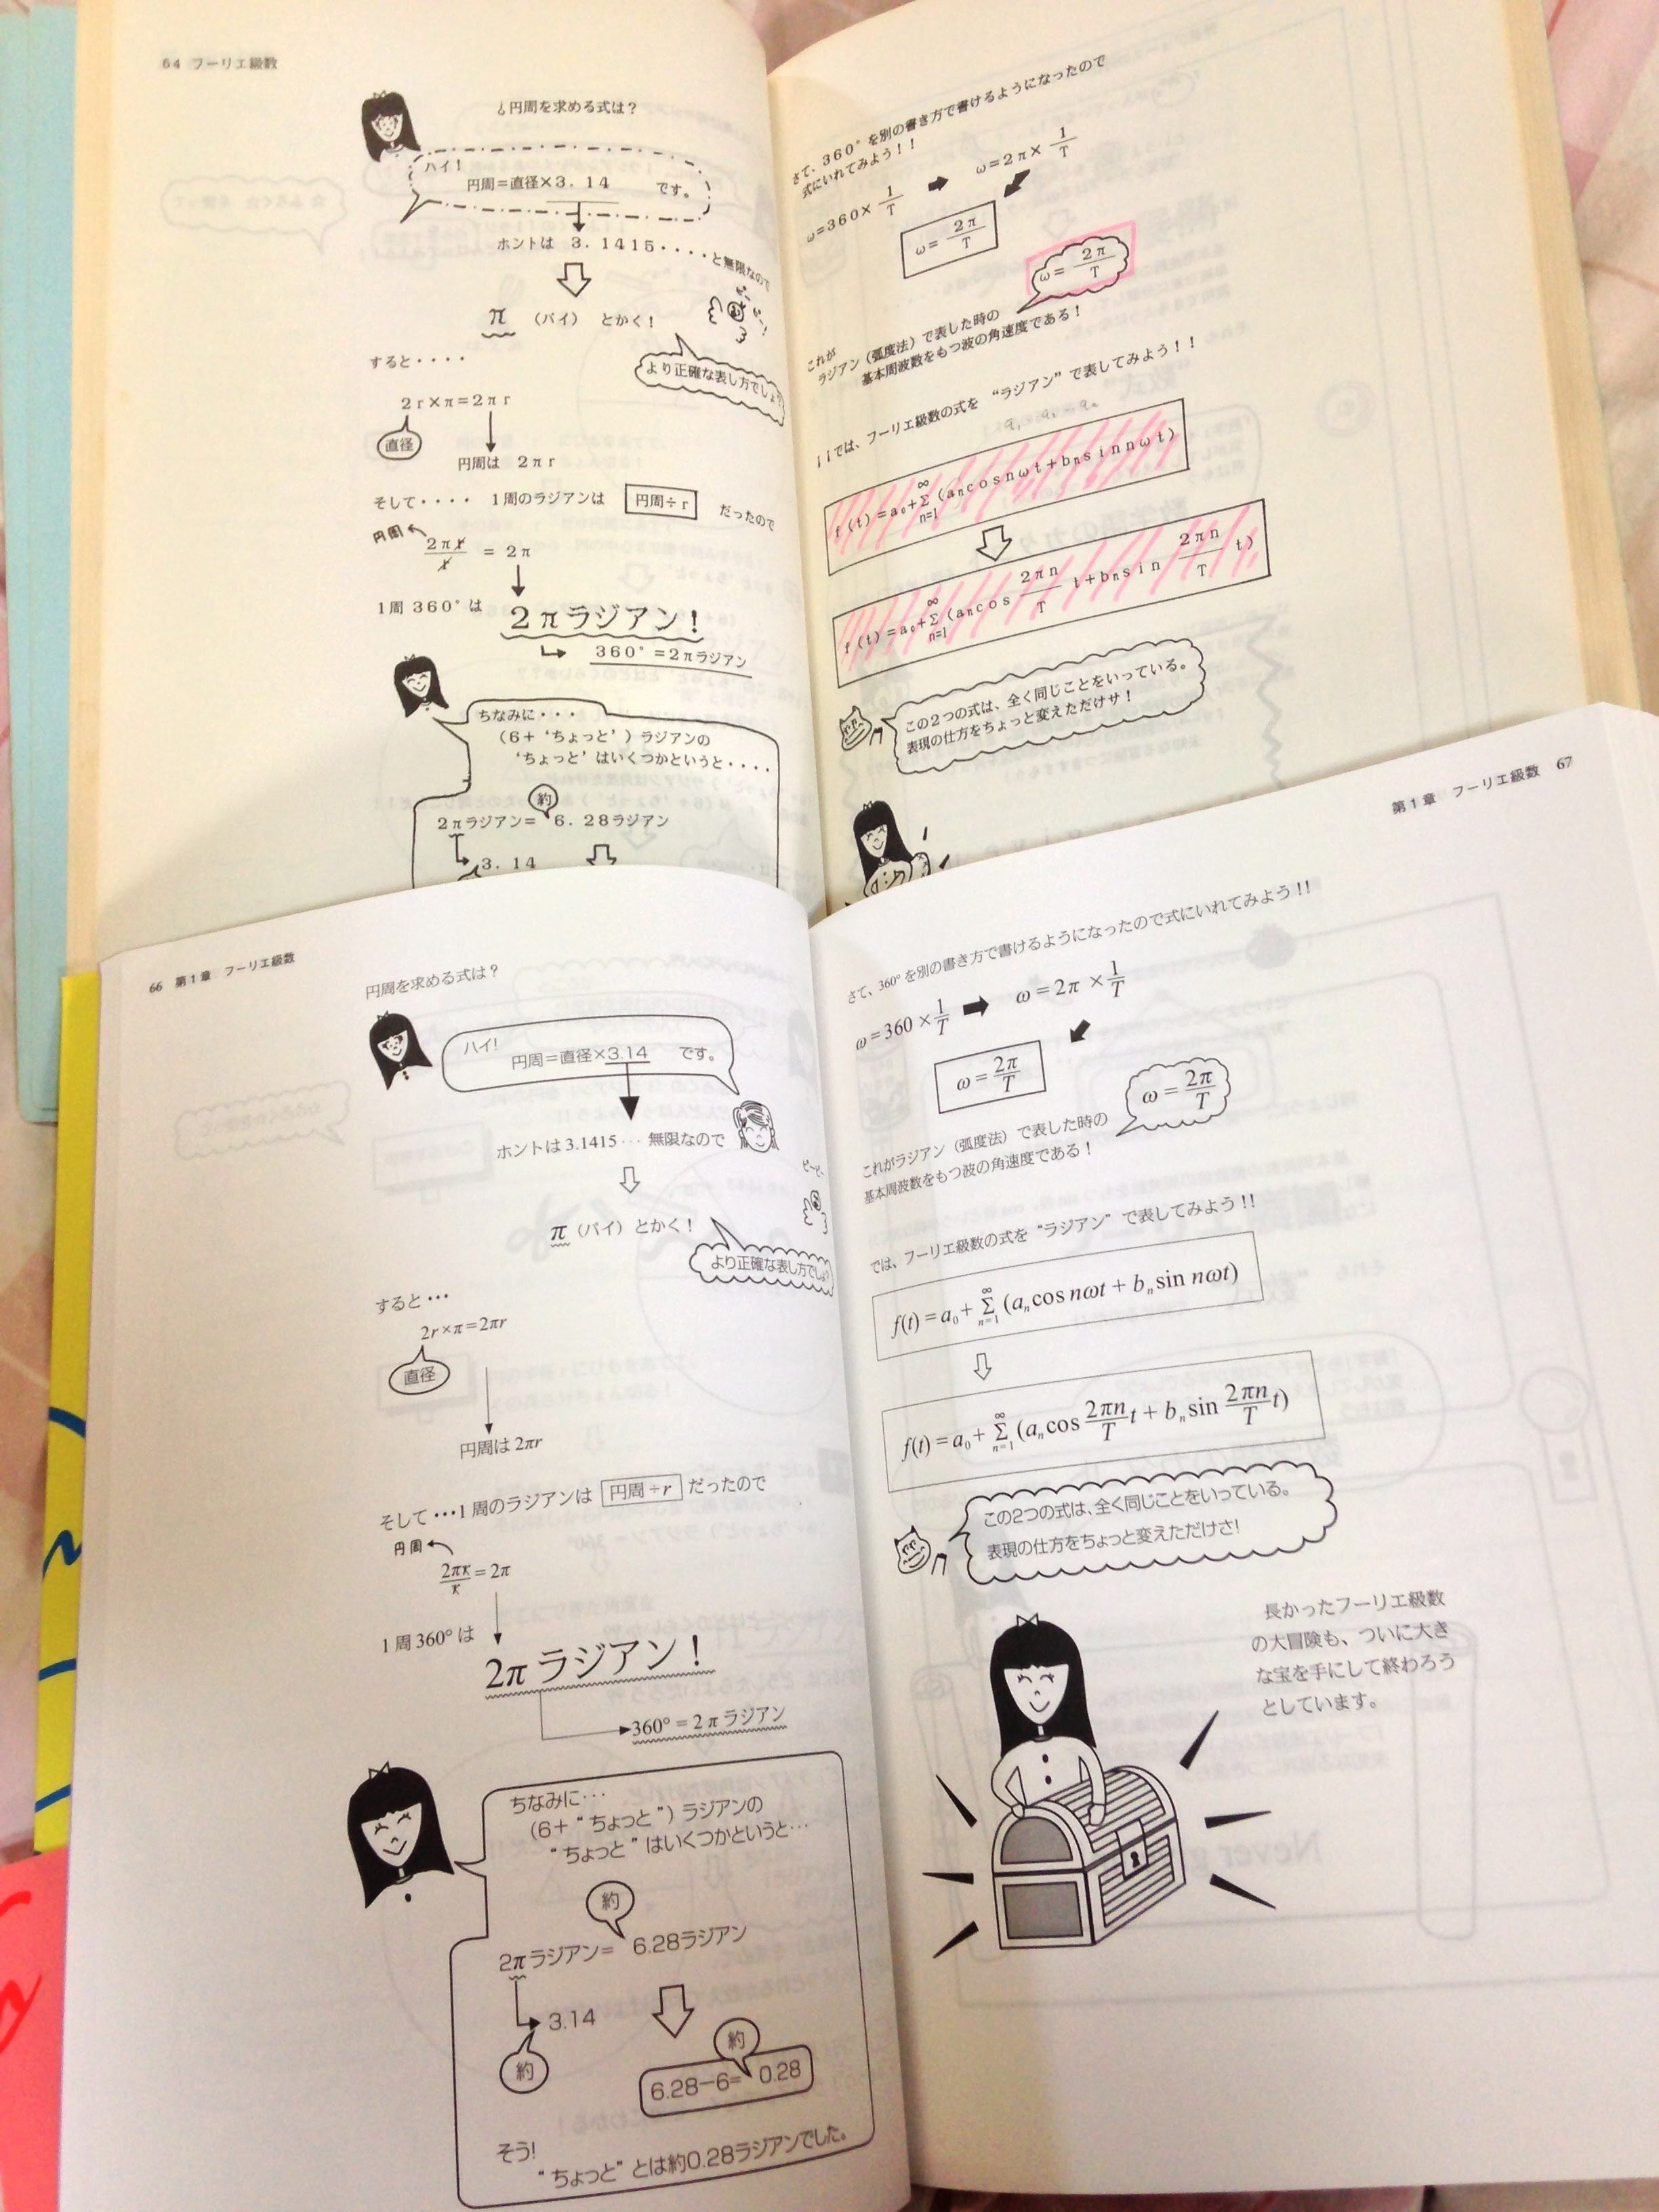 64 フーリエ級数
円周を求める式は?
ハイ!
円周=直径×3.14 です。
ホントは 3.1415・・・・と無限なので
π (パイ) とかく!
より正確な表し方でしょ
すると・・・・
2r×π=2πr
直径
円周は 2πr
そして・・・・ 1周のラジアンは 円周÷r だったので
円周
2πr/r = 2π
1周360°は 2πラジアン!
360°=2πラジアン
ちなみに・・・
(6+'ちょっと')ラジアンの
'ちょっと'はいくつかというと・・・・
約
2πラジアン= 6.28ラジアン
3.14
さて、360°を別の書き方で書けるようになったので
式にいれてみよう!!
ω=360×1/T ω=2π×1/T
ω=2π/T
ω=2π/T
これが
ラジアン(弧度法)で表した時の
基本周波数をもつ波の角速度である!
では、フーリエ級数の式を "ラジアン"で表してみよう!!
f(t)=a₀+Σ(aₙcosnωt+bₙsinnωt)
∞
n=1
f(t)=a₀+Σ(aₙcos 2πn/T t+bₙsin 2πn/T t)
∞
n=1
この2つの式は、全く同じことをいっている。
表現の仕方をちょっと変えただけサ!
66 第1章 フーリエ級数
円周を求める式は?
ハイ!
円周=直径×3.14 です。
ホントは3.1415… 無限なので
ピーピー
π(パイ)とかく!
より正確な表し方でしょ
すると…
2r×π=2πr
直径
円周は2πr
そして…1周のラジアンは 円周÷r だったので
円周
2πr/r=2π
1周360°は
2πラジアン!
360°=2πラジアン
ちなみに…
(6+"ちょっと")ラジアンの
"ちょっと"はいくつかというと…
約
2πラジアン= 6.28ラジアン
3.14
約
約
6.28−6= 0.28
そう!
"ちょっと"とは約0.28ラジアンでした。
第1章 フーリエ級数 67
さて、360°を別の書き方で書けるようになったので式にいれてみよう!!
ω=360×1/T ω=2π×1/T
ω=2π/T
ω=2π/T
これがラジアン(弧度法)で表した時の
基本周波数をもつ波の角速度である!
では、フーリエ級数の式を"ラジアン"で表してみよう!!
f(t)=a₀+Σ(aₙcos nωt+bₙsin nωt)
∞
n=1
f(t)=a₀+Σ(aₙcos 2πn/T t+bₙsin 2πn/T t)
∞
n=1
この2つの式は、全く同じことをいっている。
表現の仕方をちょっと変えただけさ!
長かったフーリエ級数
の大冒険も、ついに大き
な宝を手にして終わろう
としています。